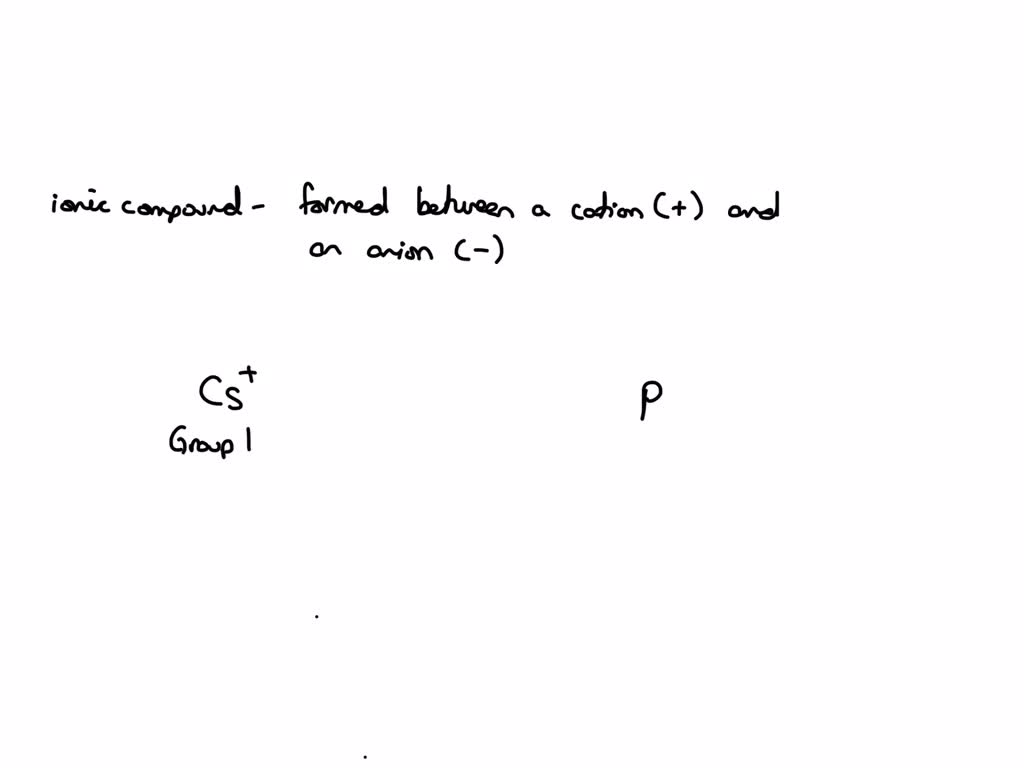 ionic compound - formed between a cation (+) and
an anion (-)
Cs⁺ P
Group 1